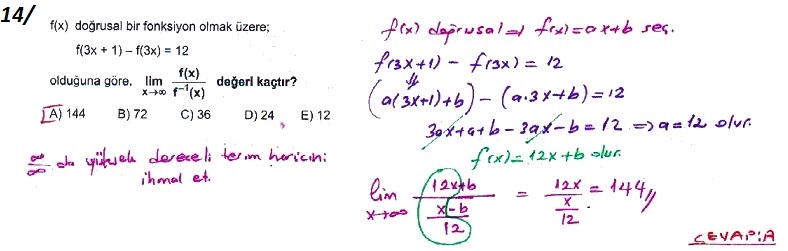 14/
f(x) doğrusal bir fonksiyon olmak üzere;
f(3x + 1) – f(3x) = 12
olduğuna göre, lim x→∞ f(x) / f⁻¹(x) değeri kaçtır?
A) 144 B) 72 C) 36 D) 24 E) 12
∞/∞ da yüksek dereceli terim haricini
ihmal et.
f(x) doğrusal ⇒ f(x)=ax+b seç.
f(3x+1) – f(3x) = 12
⇓
(a(3x+1)+b) – (a.3x+b) = 12
3ax+a+b – 3ax – b = 12 ⇒ a=12 olur.
f(x)=12x+b olur.
lim x→∞ (12x+b) / ((x–b)/12) = 12x / (x/12) = 144//
CEVAP:A